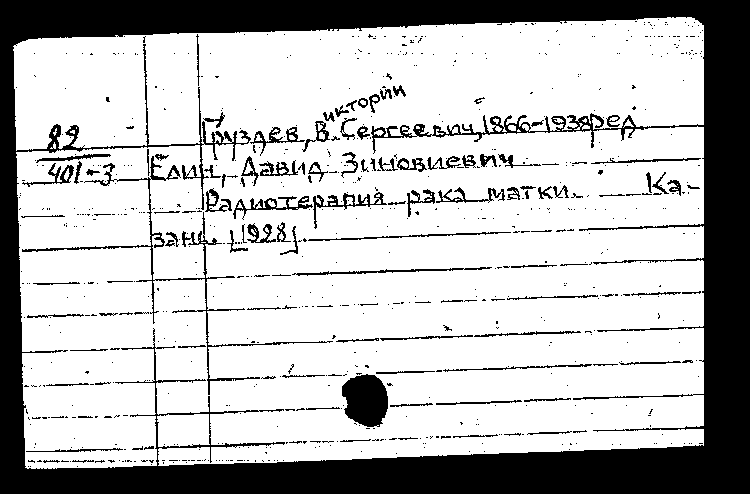 икторин
82 Груздев, В. Сергеевич, 1866-1938 ред.
401-3 Елин, Давид Зиновиевич
Радиотерапия рака матки. Ка-
зань. [1928].